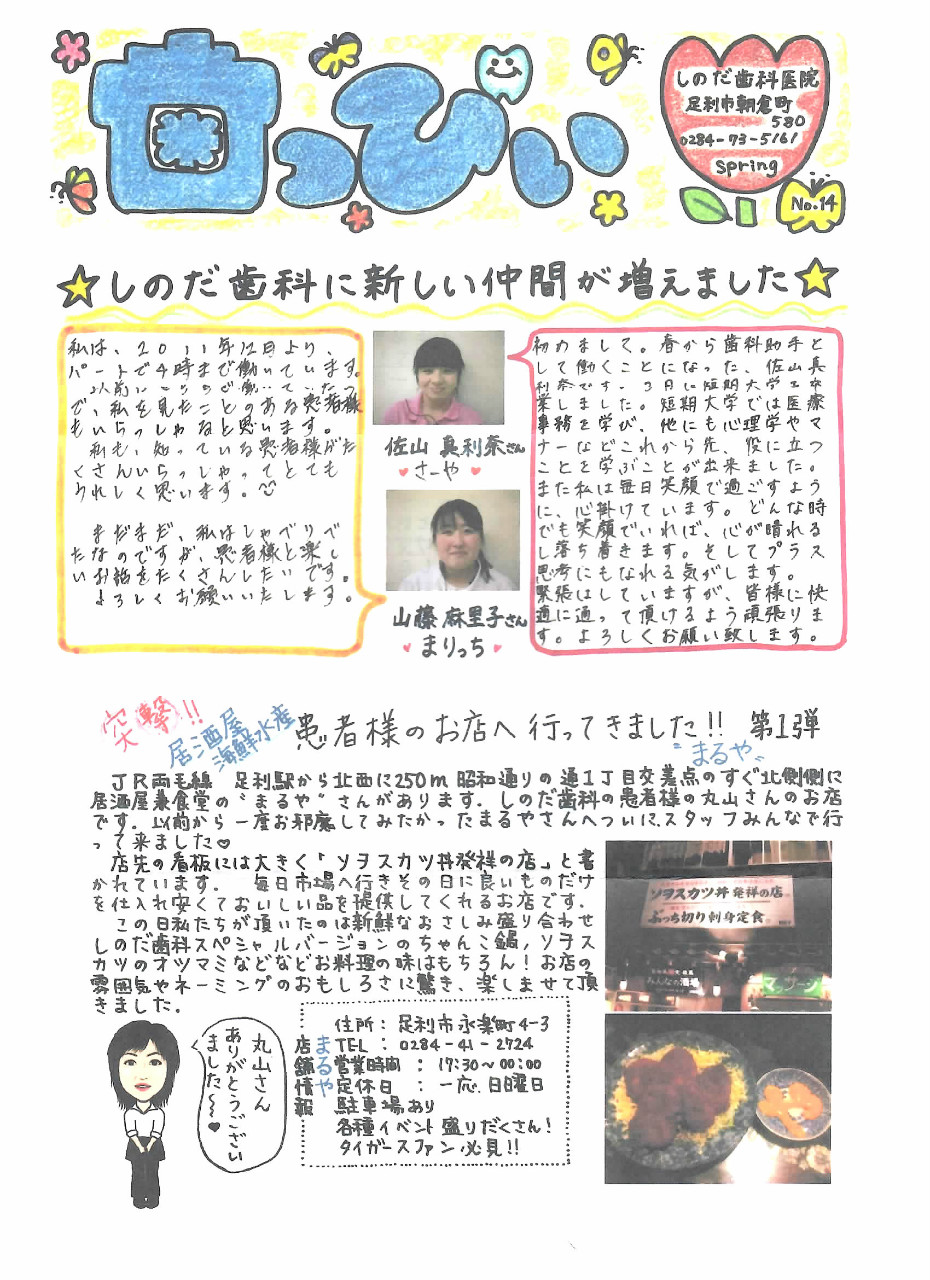 甘っぴぃ
しのだ歯科医院
足利市朝倉町
580
0284-73-5161
Spring
No.14
しのだ歯科に新しい仲間が増えました
私は、2011年12月より、
パートで4時まで働いています。
で、私を見たことのある患者様
もいらっしゃると思います。
私も、知っている患者様がた
くさんいらっしゃってとても
うれしく思います。
まだまだ、私はしゃべりべ
たなのですが、患者様と楽し
いお話をたくさんしたいです。
よろしくお願いいたします。
佐山 真利奈さん
さーや
山藤 麻里子さん
まりっち
初めまして。春から歯科助手と
して働くことになった、佐山真
利奈です。3月に短期大学を卒
業しました。短期大学では医療
事務を学び、他にも心理学やマ
ナーなどこれから先、役に立つ
ことを学ぶことが出来ました。
また私は毎日笑顔で過ごすよう
に、心掛けています。どんな時
でも笑顔でいれば、心が晴れる
し落ち着きます。そしてプラス
思考にもなれる気がします。
緊張はしていますが、皆様に快
適に通って頂けるよう頑張りま
す。よろしくお願い致します。
突撃!!
居酒屋
海鮮水産
患者様のお店へ行ってきました!! 第1弾
"まるや"
JR両毛線 足利駅から北西に250m 昭和通りの通1丁目交差点のすぐ北側側に
居酒屋兼食堂の"まるや"さんがあります。しのだ歯科の患者様の丸山さんのお店
です。以前から一度お邪魔してみたかったまるやさんへついに、スタッフみんなで行
って来ました♡
店先の看板には大きく「ソヲスカツ丼発祥の店」と書
かれています。 毎日市場へ行きその日に良いものだけ
を仕入れ安くておいしい品を提供してくれるお店です。
この日私たちが頂いたのは新鮮なおさしみ盛り合わせ
しのだ歯科スペシャルバージョンのちゃんこ鍋,ソヲス
カツのオツマミなどなどお料理の味はもちろん!お店の
雰囲気やネーミングのおもしろさに驚き、楽しませて頂
きました。
ソヲスカツ丼発祥の店
ぶっち切り刺身定食
みんなの酒場
マッサージ
丸山さん
ありがとうござい
ました〜♥
店舗情報
まるや
住所：足利市永楽町4-3
TEL：0284-41-2724
営業時間：17:30〜00:00
定休日：一応、日曜日
駐車場あり
各種イベント盛りだくさん!
タイガースファン必見!!